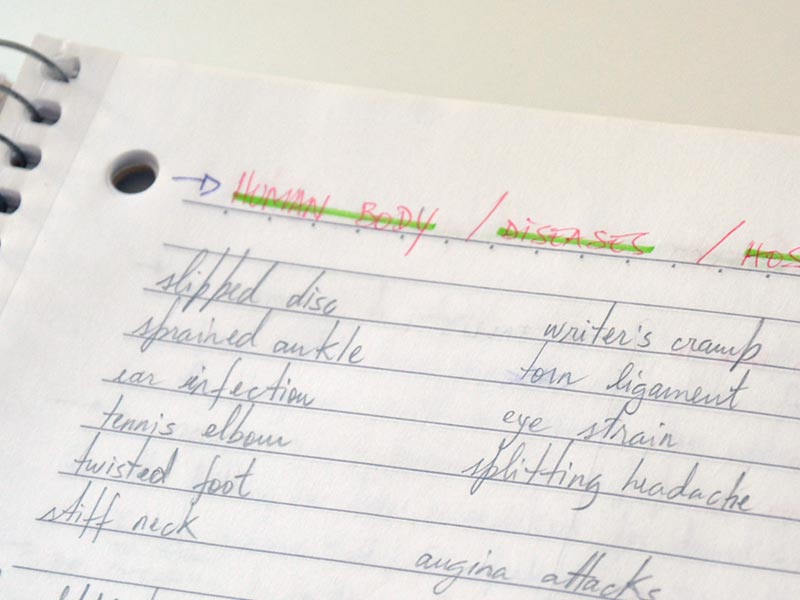 → HUMAN BODY / DISEASES / HOS
slipped disc
sprained ankle
ear infection
tennis elbow
twisted foot
stiff neck
writer's cramp
torn ligament
eye strain
splitting headache
angina attacks